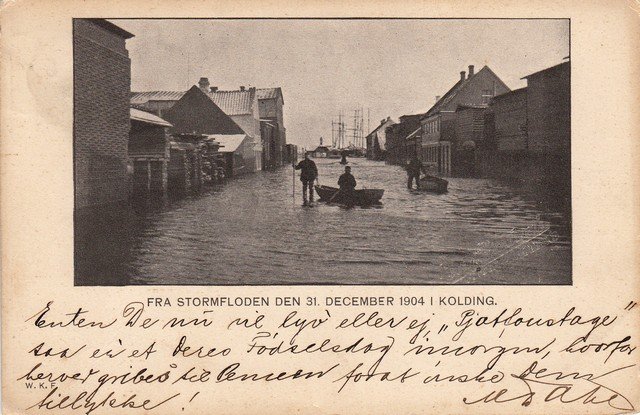 FRA STORMFLODEN DEN 31. DECEMBER 1904 I KOLDING.
Enten De nu vil lyv eller ej „Pjattoustage"
saa er et Deres Fødselsdag imorgen, hvorfor
herved gribes til Pennen forat ønske Dem
W. K. F.
tillykke!